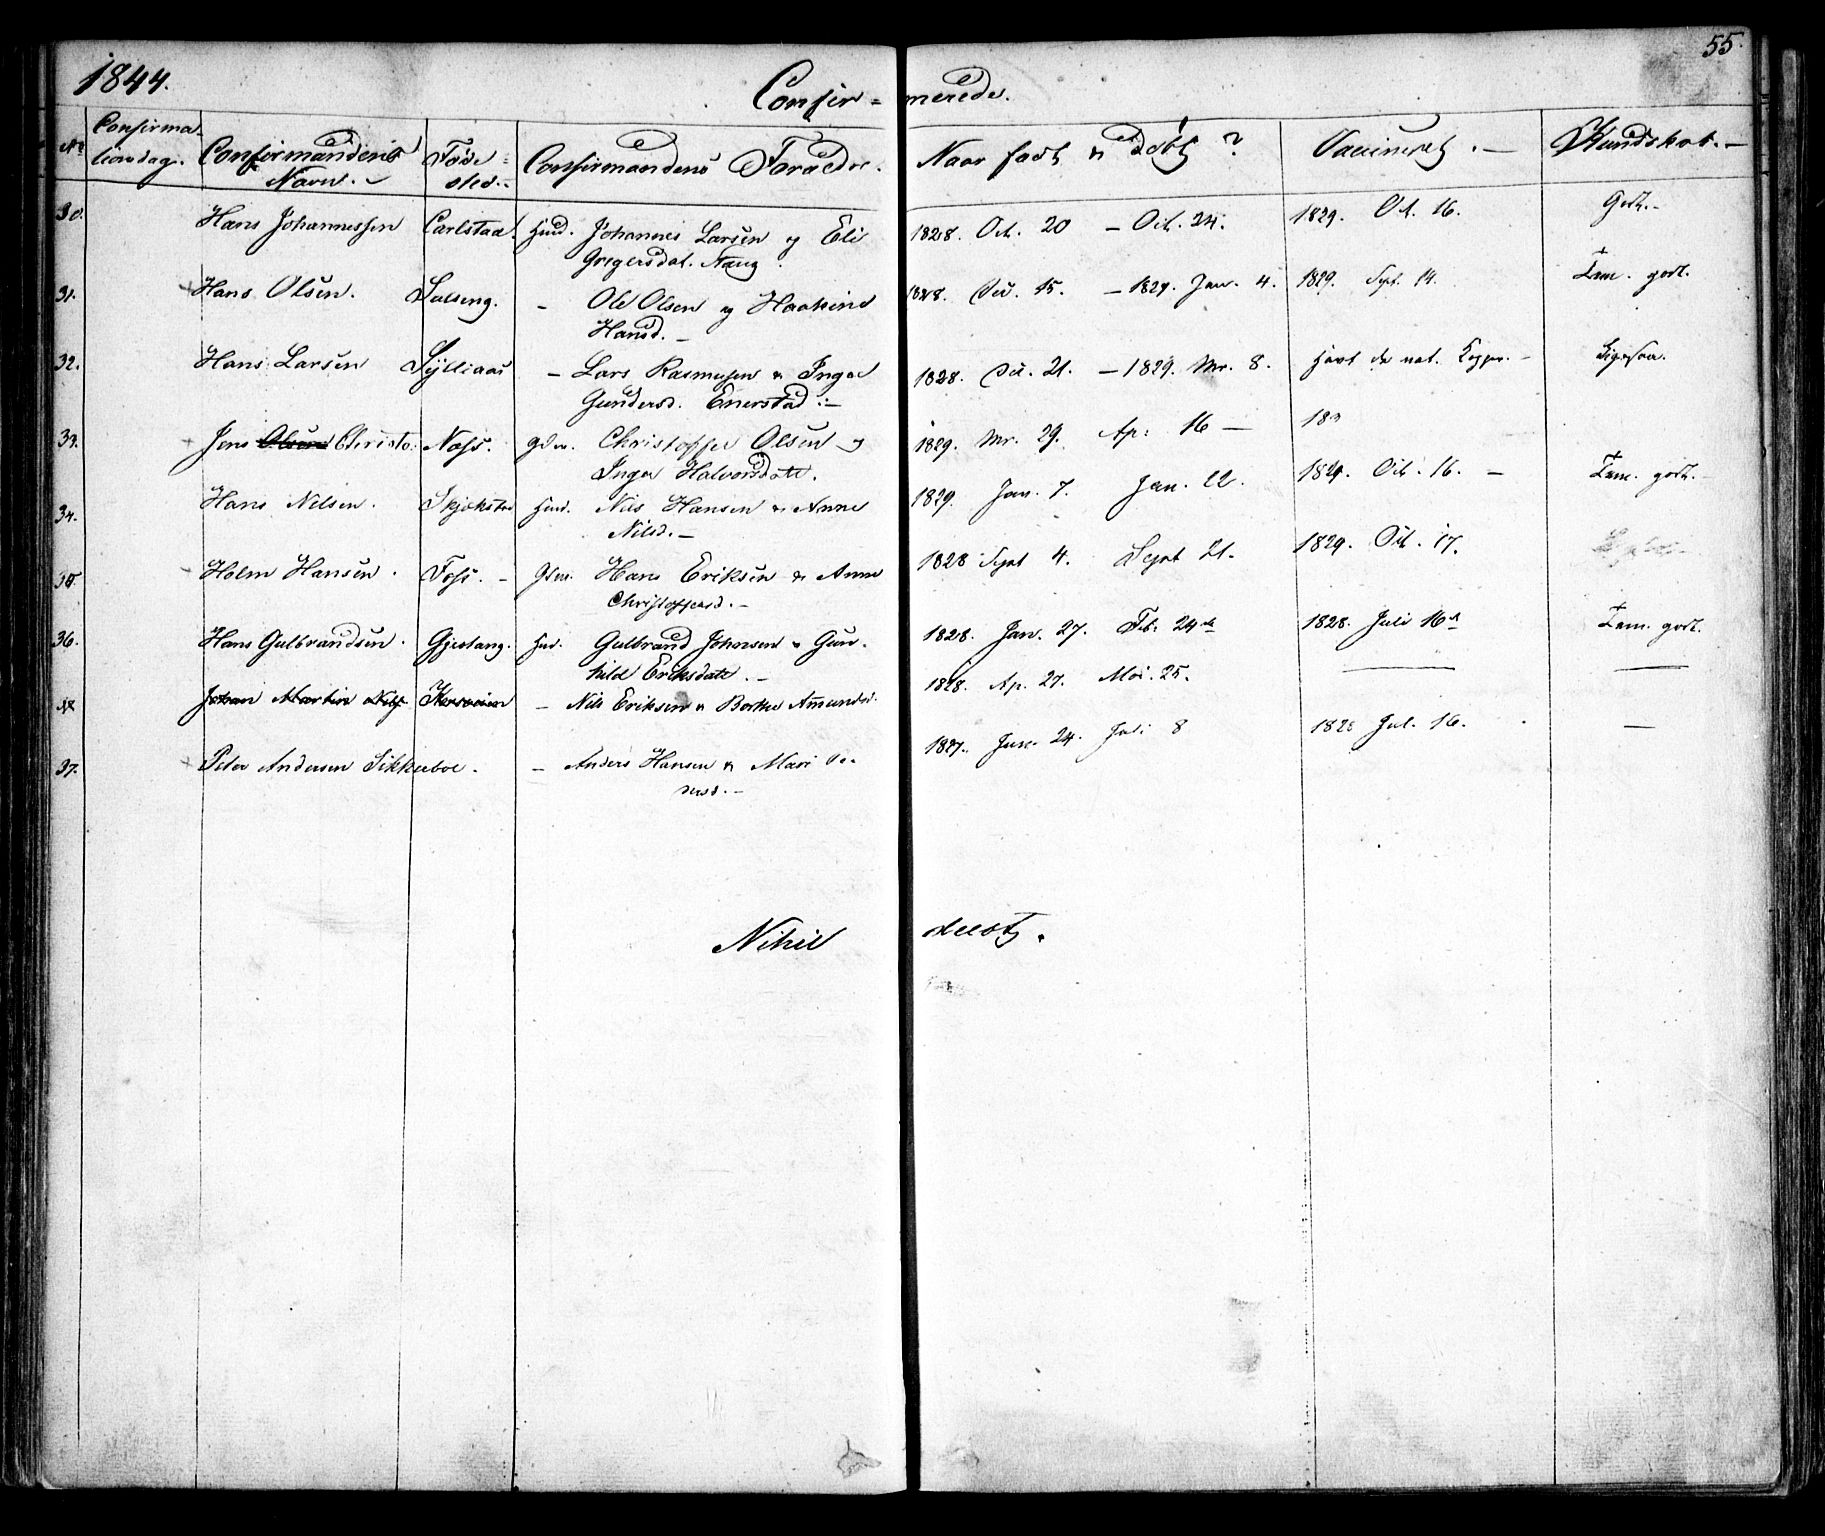 1844. Confir= merede. 55.
No Confirma-tionsdag. Confirmandens Navn. Føde-sted. Confirmandens Forældre. Naar født og døbt? Vaccineret. Kundskab.
30. Hans Johannessen Carlstad. Huusm. Johannes Larsen og Eli 1828. Oct. 20 – Oct. 24. 1829. Oct. 16. Godt.
Gregersdat. Haug.
31. Hans Olsen. – Ole Olsen og Haakine 1828. Dec. 15. – 1829. Jan. 4. 1829. Sept. 14. Tem. godt.
Hansd.
32. Hans Larsen – Lars Rasmusen og Inger 1828. Dec. 21. – 1829. Mr. 8. Havt de nat. Kopper. Ligesaa.
Gundersd. Enerstad.
33. Jens Olsen Christo. Noss. Gdm. Christoffer Olsen og 1829. Mr. 29. Ap. 16 – 18
Inger Halvorsdatt.
34. Hans Nilsen. Huusm. Nils Hansen og Anne 1829 Jan. 7. Jan. 22. 1829. Oct. 16. – Tem. godt.
Nilsd.
35 Holm Hansen. Foss. – Gdm. Hans Eriksen og Anne 1828 Sept 4. Sept 21. 1829. Oct. 17.
Christoffersd.
36. Hans Gulbrandsen. Gjestang. Huusm. Gulbrand Johnsen og Gun- 1828. Jan. 27. Feb. 24de 1828. Juli 16d Tem. godt.
hild Eriksdatt.
Johan Martin Nils. – Nils Eriksen og Berthe Amundsd. 1828. Ap. 27. Mai. 25.
37. Peder Andersen Sikkeboe. – Anders Hansen og Mari Pe- 1827. Jun. 24. Juli 8 1828 Jul. 16. –
dersd.
Nihil deest.